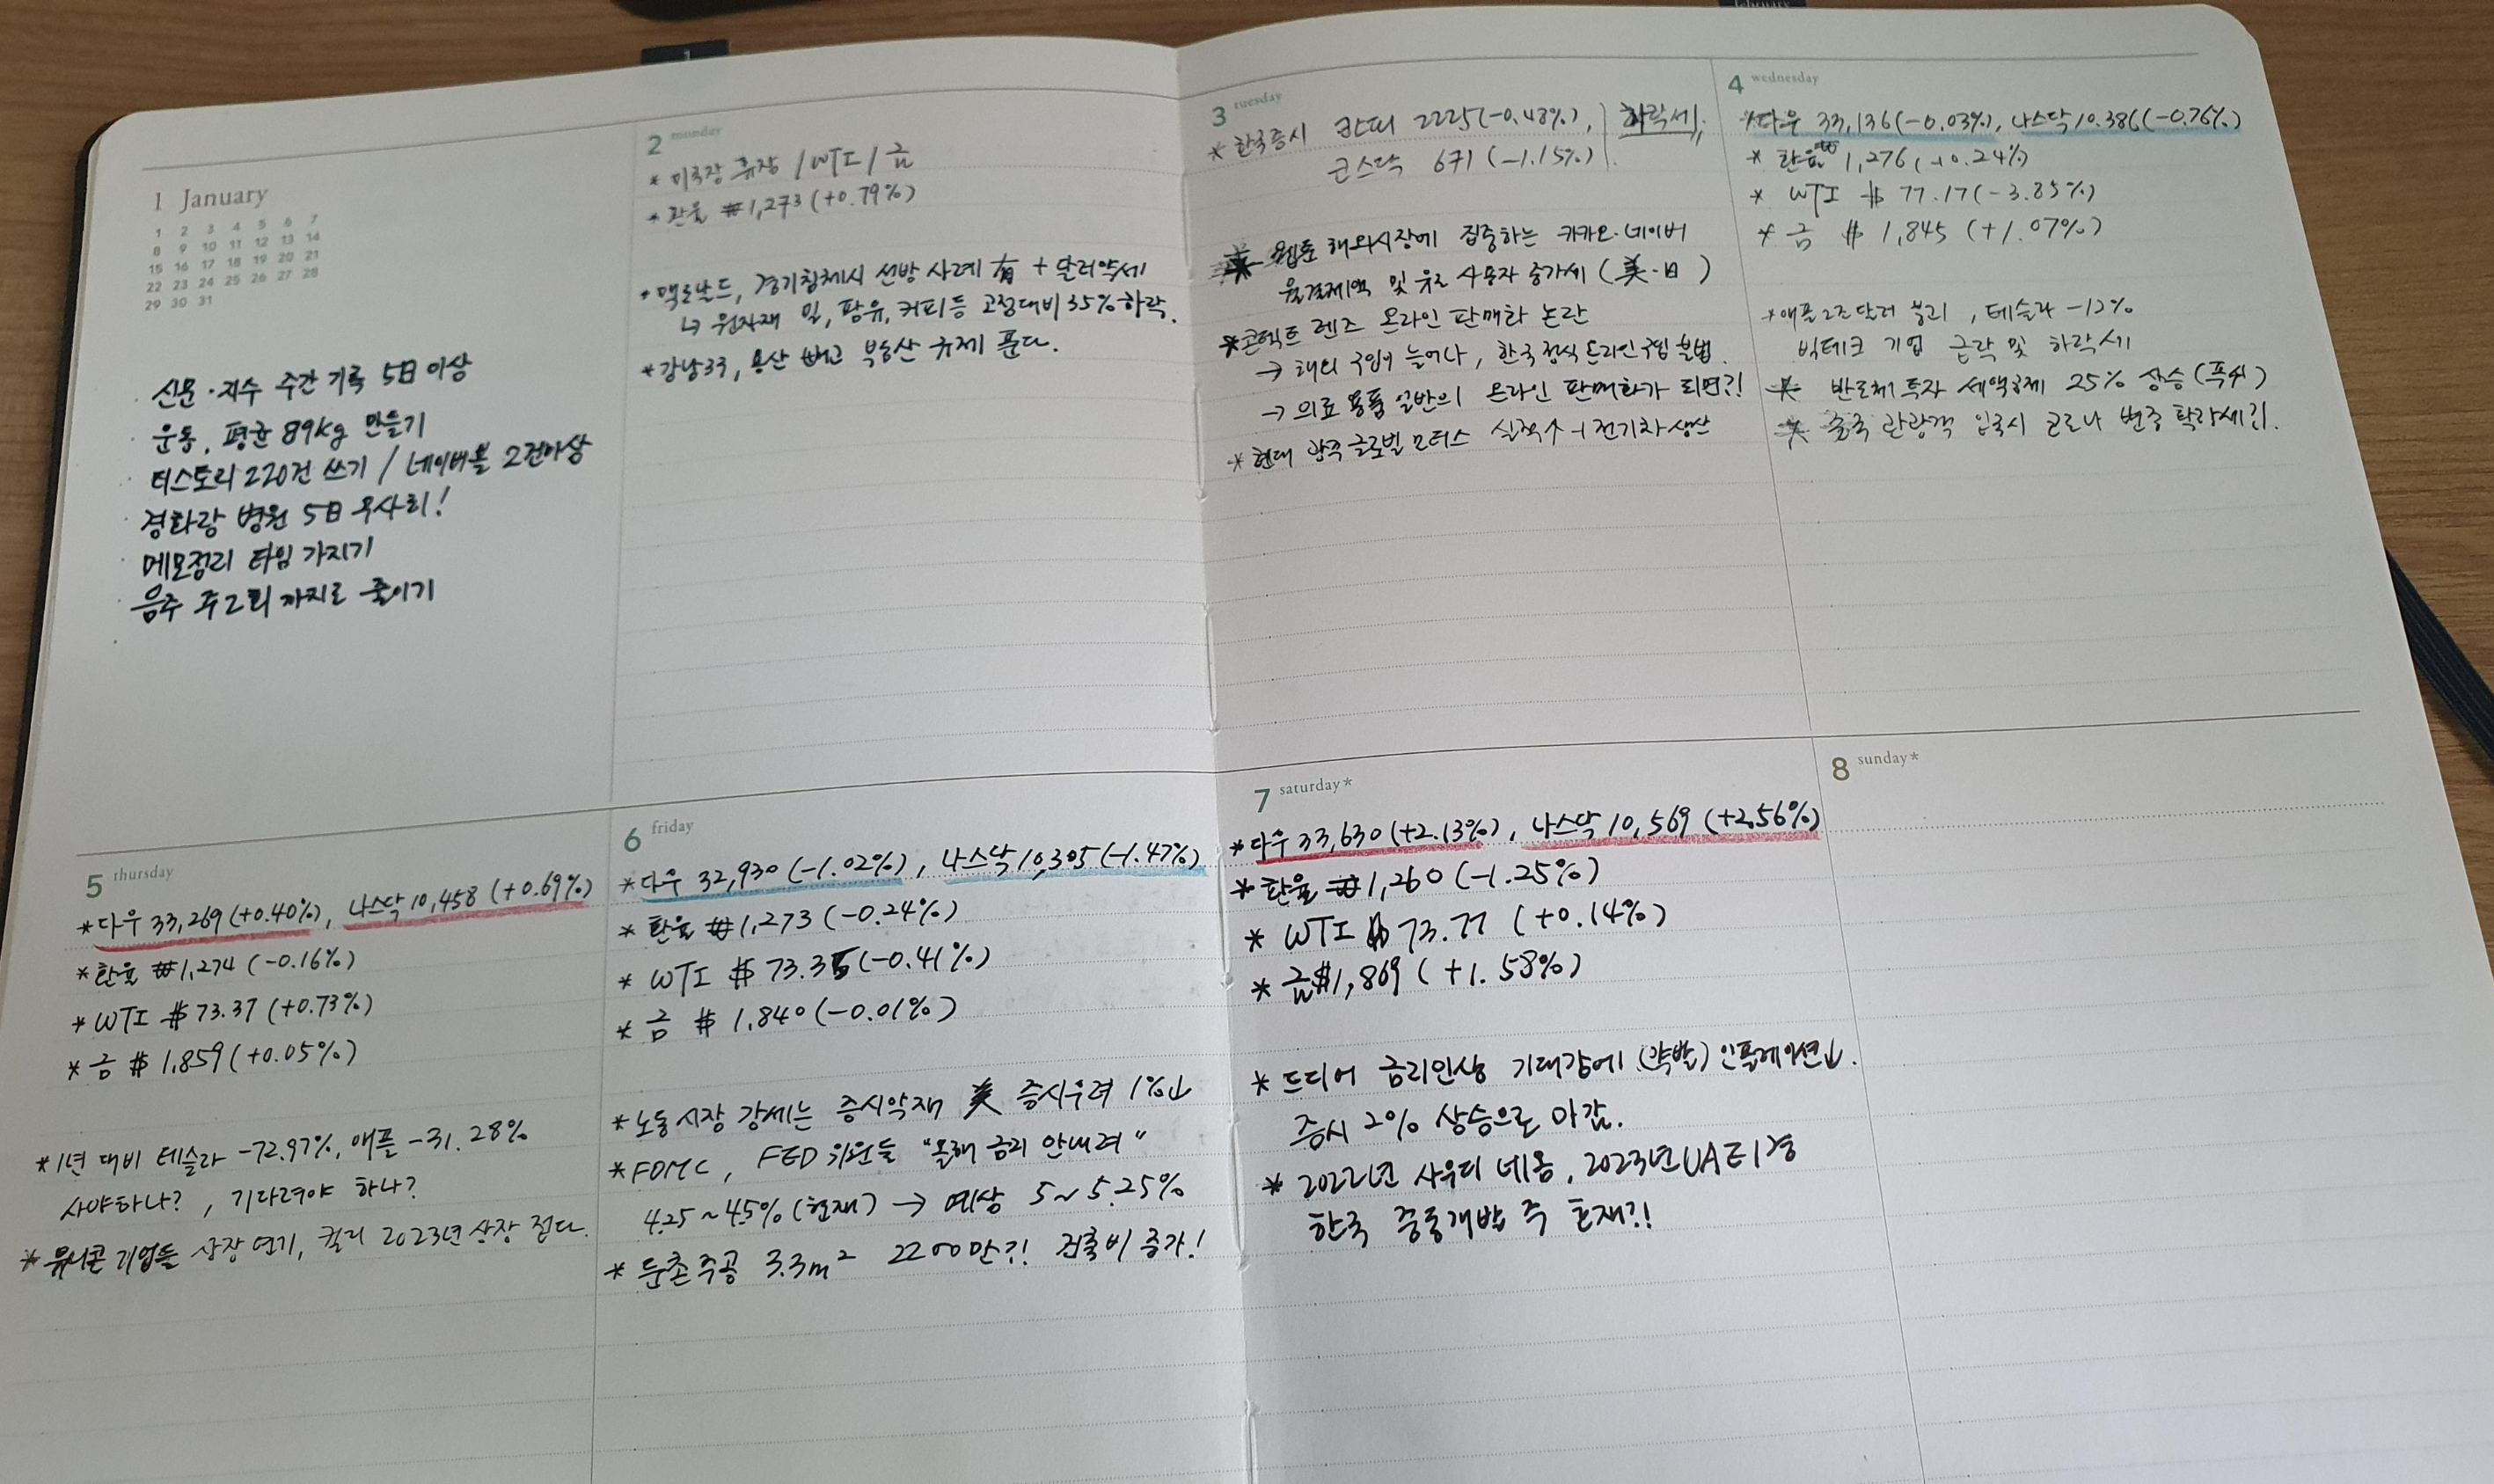 1
february
1 January
1 2 3 4 5 6 7
8 9 10 11 12 13 14
15 16 17 18 19 20 21
22 23 24 25 26 27 28
29 30 31
· 신문·지수 주간 기록 5日 이상
· 운동, 평균 89kg 만들기
· 티스토리 220건 쓰기 / 네이버블 2건이상
· 경화랑 병원 5日 무사히!
· 메모정리 타임 가지기
· 음주 주2회 까지로 줄이기
2 monday
* 미국장 휴장 / WTI / 금
* 환율 ₩1,273 (+0.79%)
* 맥도날드, 경기침체시 선방 사례 有 + 달러약세
↳ 원자재 밀, 팜유, 커피등 고점대비 35% 하락.
* 강남3구, 용산 빼고 부동산 규제 푼다.
3 tuesday
* 한국증시 코스피 2225(-0.48%), 하락세
코스닥 671 (-1.15%)
* 웹툰 해외시장에 집중하는 카카오·네이버
월결제액 및 유료 사용자 증가세 (美·日)
* 콘텍트 렌즈 온라인 판매화 논란
→ 해외 구입이 늘어나, 한국 정식 온라인 구입 불법.
→ 의료 용품 일반의 온라인 판매화가 되면?!
* 현대 광주글로벌 모터스 실적↑ → 전기차 생산
4 wednesday
* 다우 33,136(-0.03%), 나스닥 10.386(-0.76%)
* 환율 1,276 (+0.24%)
* WTI $ 77.17(-3.85%)
* 금 $ 1,845 (+1.07%)
* 애플 2조 달러 붕괴, 테슬라 -12%
빅테크 기업 급락 및 하락세
* 반도체 투자 세액공제 25% 상승(폭↑)
* 중국 관광객 입국시 코로나 변종 확랑세?!
5 thursday
* 다우 33,269(+0.40%), 나스닥 10,458 (+0.69%)
* 환율 ₩1,274 (-0.16%)
* WTI $ 73.37 (+0.73%)
* 금 $ 1,859(+0.05%)
* 1년 대비 테슬라 -72.97%, 애플 -31.28%
사야하나?, 기다려야 하나?
* 유니콘 기업들 상장 연기, 컬리 2023년 상장 접다.
6 friday
* 다우 32,930 (-1.02%), 나스닥 10,305 (-1.47%)
* 환율 ₩1,273 (-0.24%)
* WTI $ 73.35(-0.41%)
* 금 $ 1,840(-0.01%)
* 노동시장 강세는 증시악재 美 증시우려 1%↓
* FOMC, FED 위원들 "올해 금리 안내려"
4.25~4.5%(현재) → 예상 5~5.25%
* 둔촌주공 3.3m² 2200만?! 건축비 증가!
7 saturday*
* 다우 33,630 (+2.13%), 나스닥 10,569 (+2.56%)
* 환율 ₩1,260 (-1.25%)
* WTI $ 73.77 (+0.14%)
* 금 $1,869 (+1.58%)
* 드디어 금리인상 기대감에 (약발) 인플레이션↓.
증시 2% 상승으로 마감.
* 2022년 사우디 네옴, 2023년 UAE 1경
한국 중동개발 주 호재?!
8 sunday*